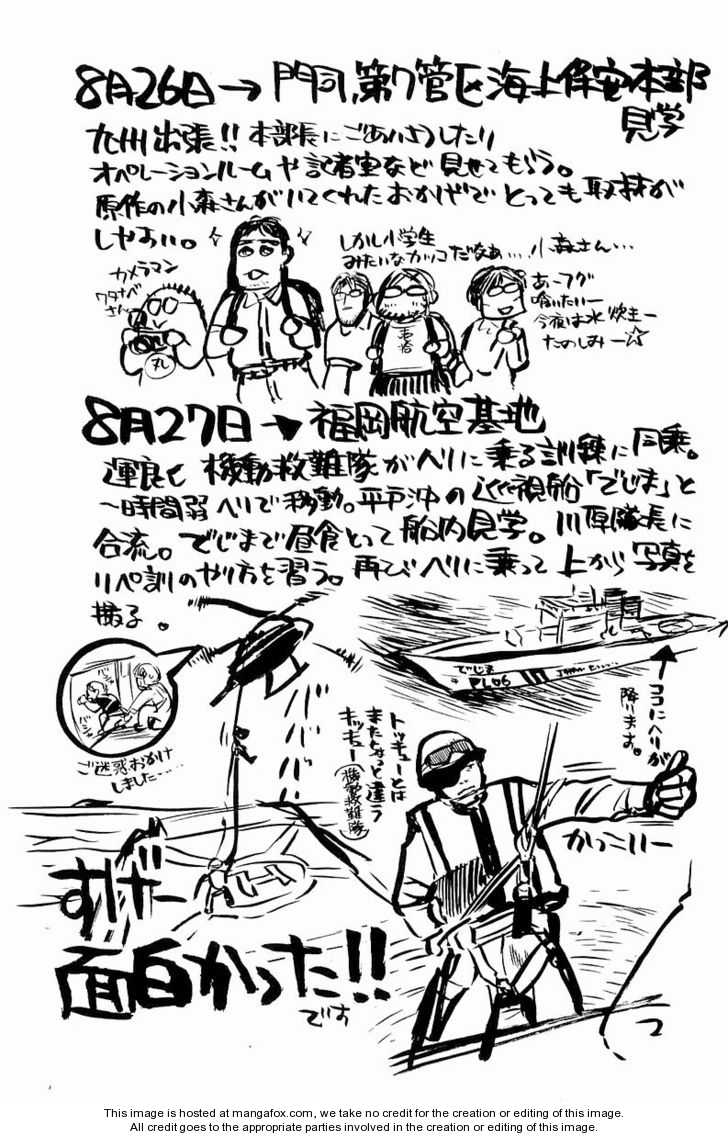 8月26日→門司、第7管区海上保安本部
見学
九州出張!!本部長にごあいさつしたり
オペレーションルームや記者室など見せてもらう。
原作の小森さんがいてくれたおかげでとっても取材が
しやすい。
カメラマン
ワタナベ
さん
しかし小学生
みたいなカッコだなあ...小森さん...
あーフグ
喰いたいー
今夜は水炊きー
たのしみー☆
丸
8月27日→福岡航空基地
運良く機動救難隊がヘリに乗る訓練に同乗。
一時間弱ヘリで移動。平戸沖の巡視船「でじま」と
合流。でじまで昼食とって船内見学。川原隊長に
リペ訓のやり方を習う。再びヘリに乗って上から写真を
撮る。
ご迷惑おかけ
しました....
バババババ
でじま
PL06
ココにヘリが
降ります。
トッキューとは
またちょっと違う
キッキュー
機動救難隊
かっこいいー
すげー
面白かった!!
です
This image is hosted at mangafox.com, we take no credit for the creation or editing of this image.
All credit goes to the appropriate parties involved in the creation or editing of this image.